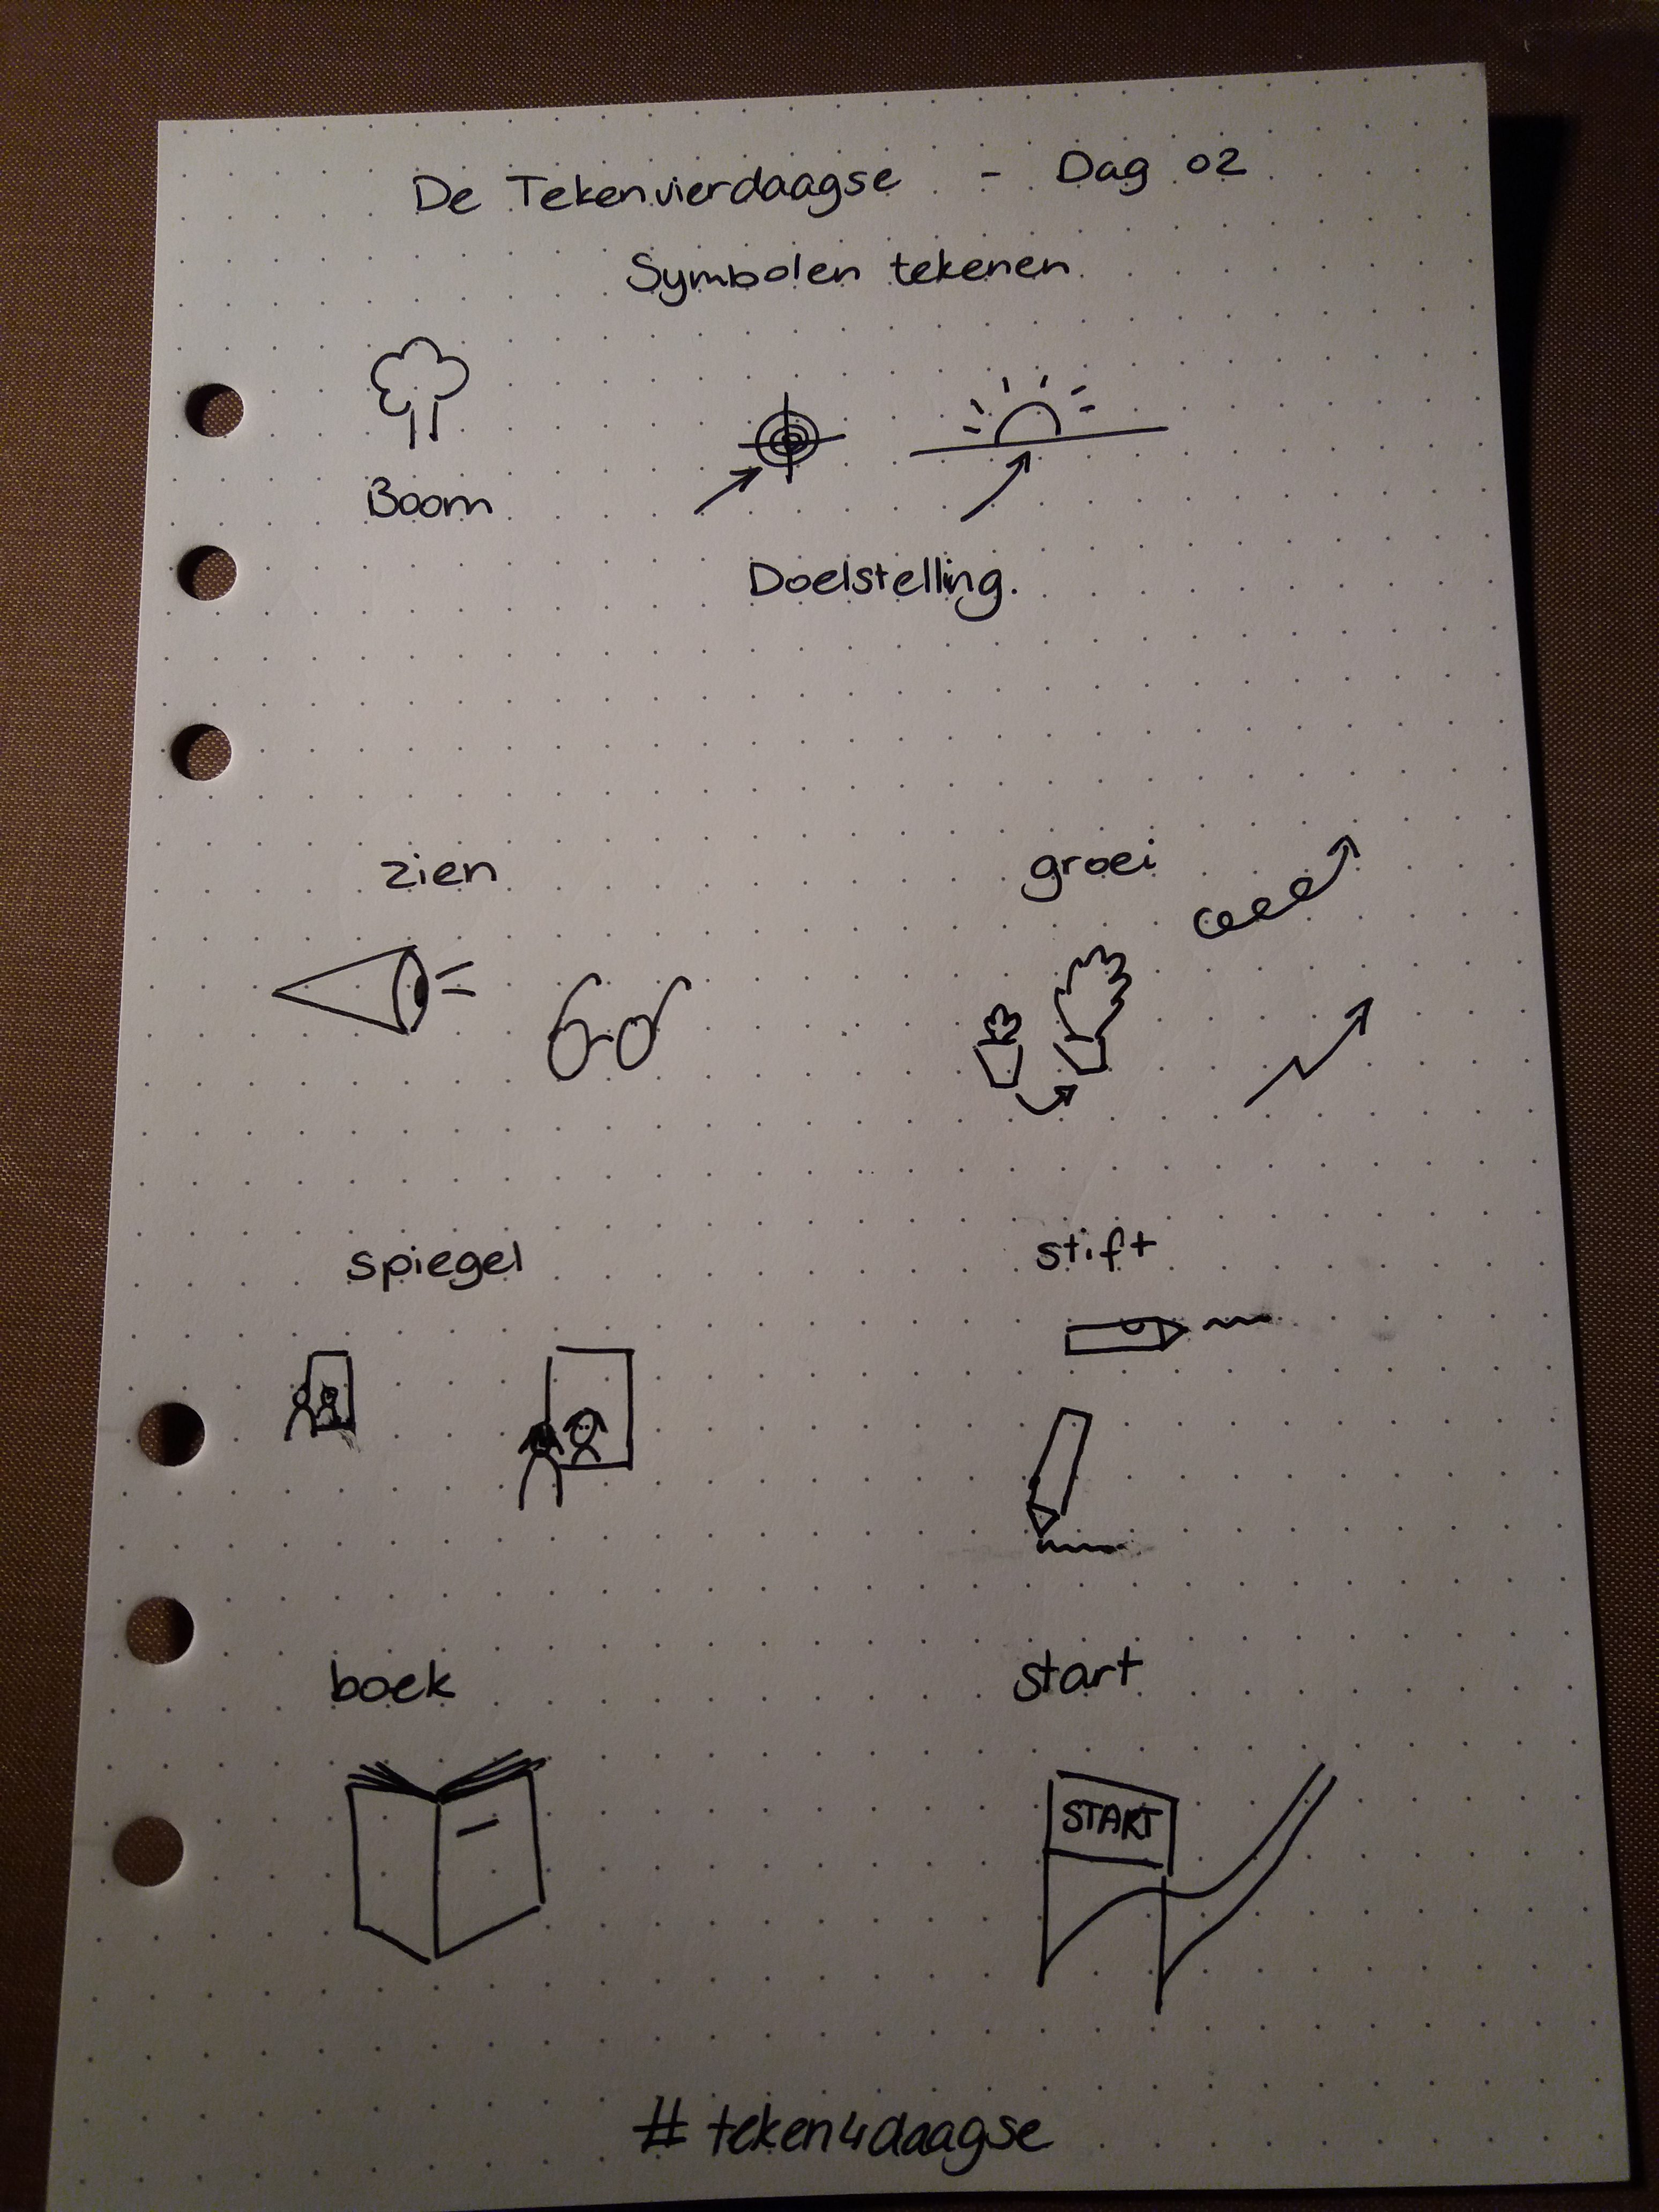 De Tekenvierdaagse - Dag 02
Symbolen tekenen
Boom
Doelstelling.
zien
groei
spiegel
stift
boek
start
START
# teken4daagse